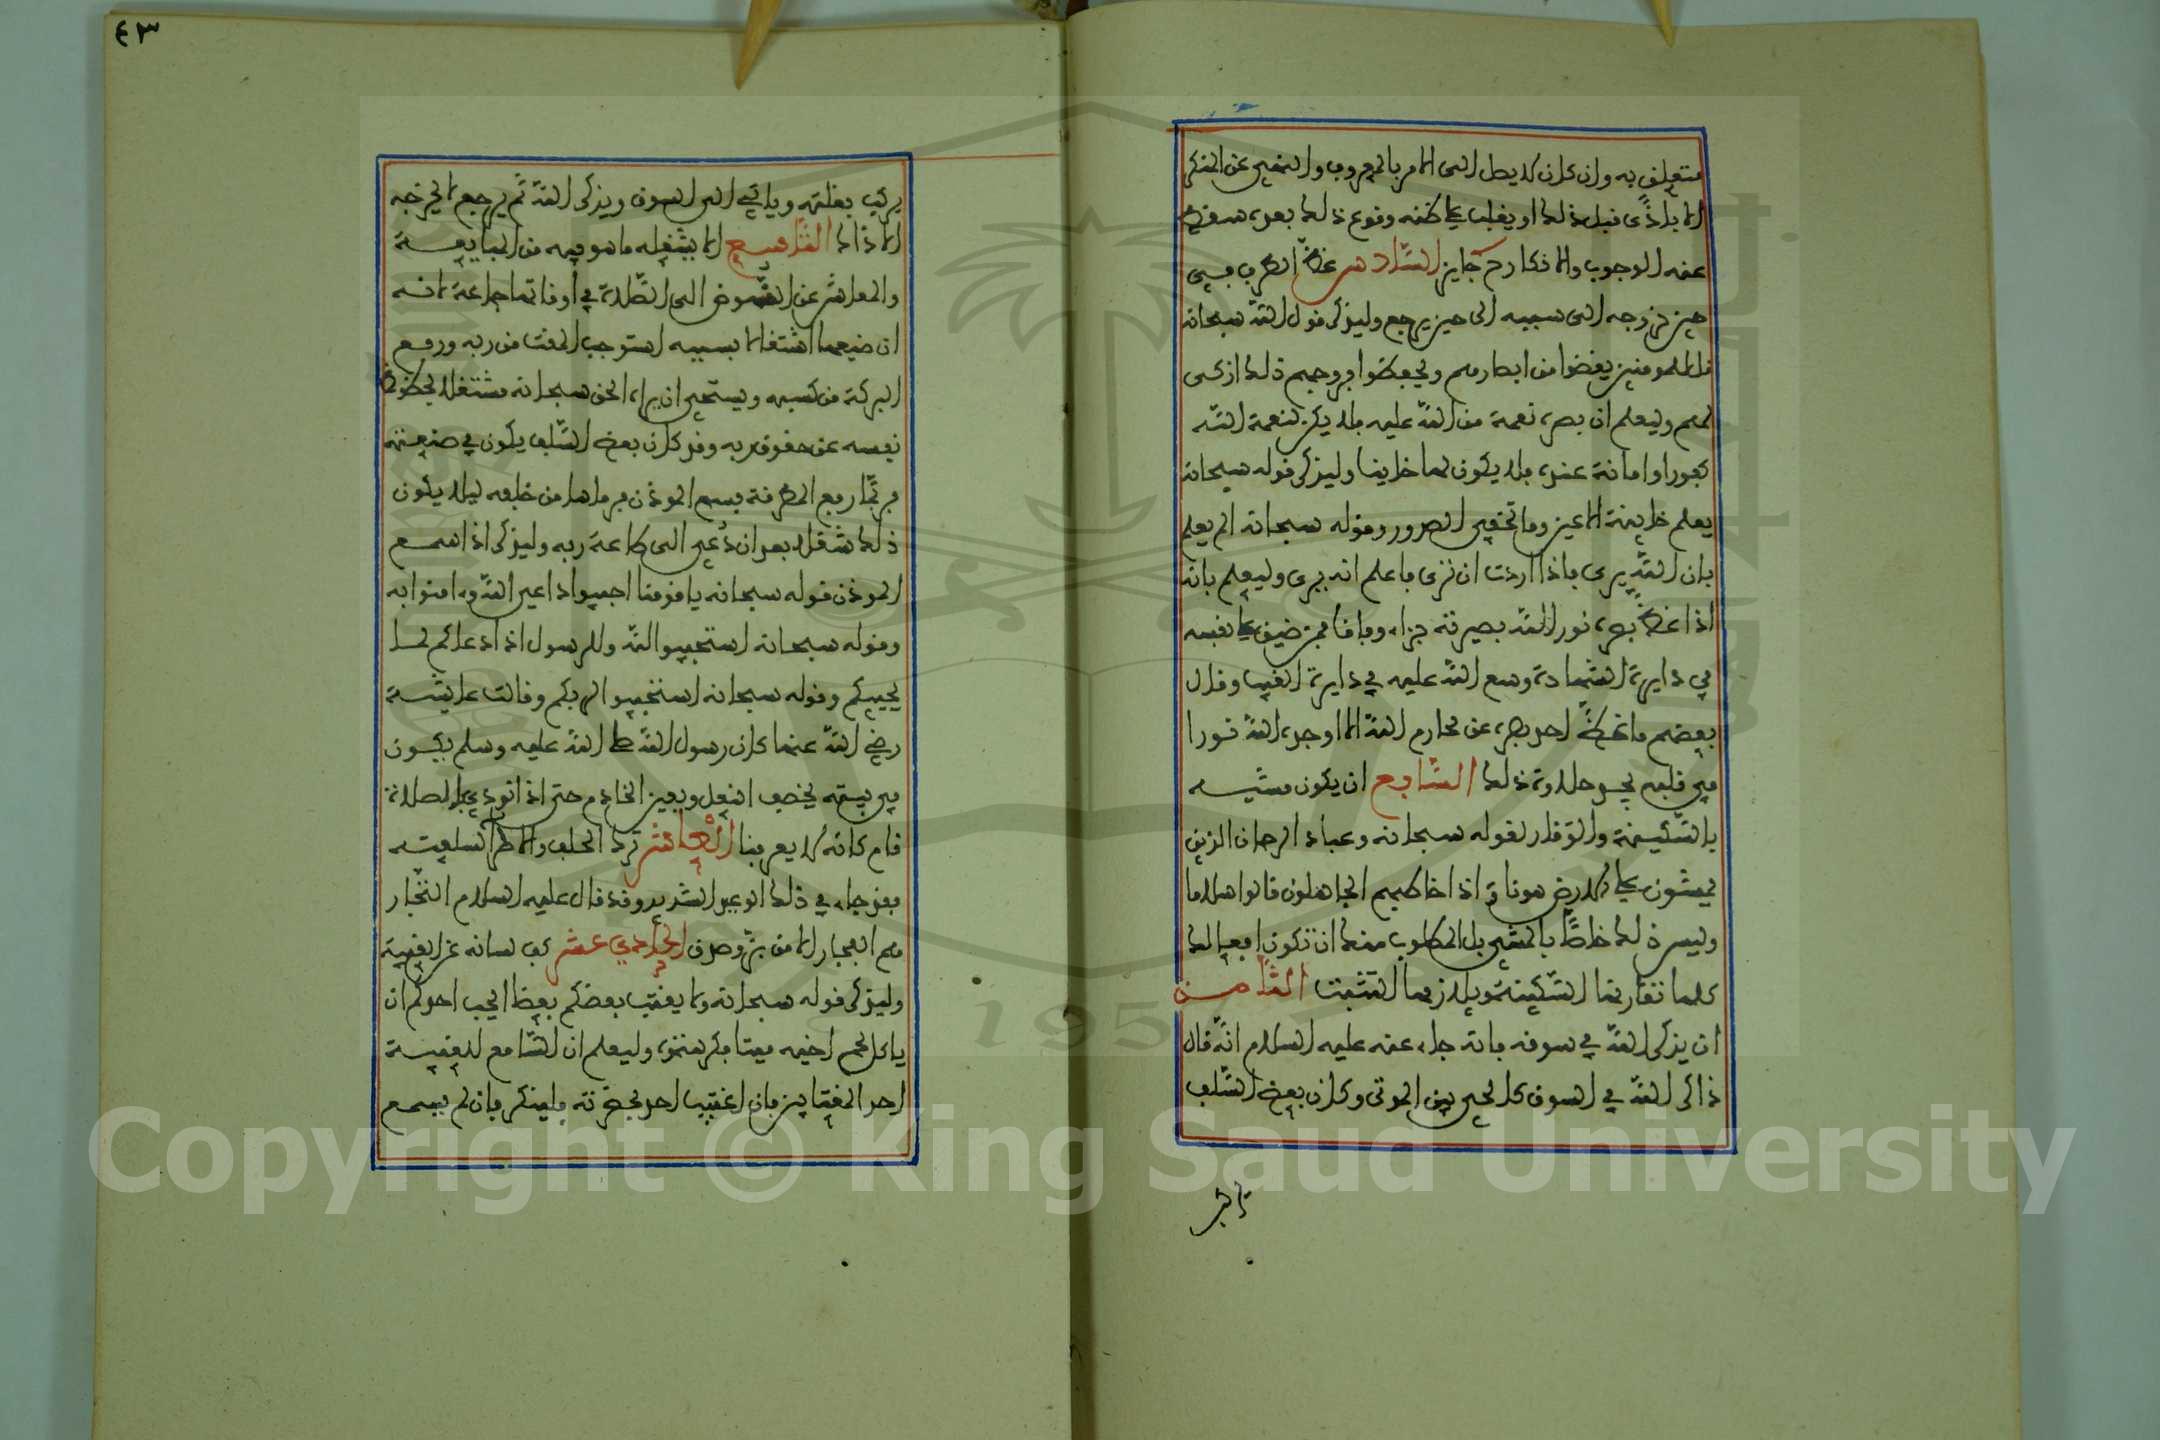 متعلق به وان كان لا يصل الى الامر بالمعروف والنهى عن المنكر
الا باذى قبل ذلك او يغلب على ظنه وقوع ذلك بعده سقط
عنه الوجوب والانكار ح جايز السادس غض الطرف فى
حين خروجه الى سببه الى حين يرجع وليذكر قول الله سبحانه
قل للمومنين يغضوا من ابصارهم ويحفظوا فروجهم ذلك ازكى
لهم وليعلم ان بصره نعمة من الله عليه فلا يكن لنعمة الله
كفورا وامانة عنده فلا يكون لها خاينا وليذكر قوله سبحانه
يعلم خاينة الاعين وما تخفى الصدور وقوله سبحانه الم يعلم
بان الله يرى فاذا اردت ان ترى فاعلم انه يرى وليعلم بانه
اذا غض بصره نور الله بصيرته جزاء وفاقا فمن ضيق على نفسه
فى دايرة الشهادة وسع الله عليه فى دايرة الغيب وقال
بعضهم ما غض احد بصره عن محارم الله الا اوجد الله نورا
فى قلبه يجد حلاوة ذلك السابع ان يكون مشيه
بالسكينة والوقار لقوله سبحانه وعباد الرحمان الذين
يمشون على الارض هونا واذا خاطبهم الجاهلون قالوا سلاما
وليس ذلك خاصا بالمشى بل المطلوب منك ان تكون افعالك
كلها تقارنها السكينة ويلازمها التثبت الثامن
ان يذكر الله فى سوقه فانه جاء عنه عليه السلام انه قال
ذاكر الله فى السوق كالحى بين الموتى وكان بعض السلف
يركب
يركب بغلته وياتى الى السوق ويذكر الله ثم يرجع لا يخرجه
الا ذاك التاسع الا يشغله ما هو فيه من المبايعة
والمعاش عن النهوض الى الصلاة فى اوقاتها جماعة لانه
ان ضيعها اشتغالا بسببه استوجب المقت من ربه ورفع
البركة من كسبه ويستحى ان يراه الحق سبحانه مشتغلا بحظوظ
نفسه عن حقوق ربه وقد كان بعض السلف يكون فى صنعته
فربما رفع المطرقة فسمع الموذن فرماها من خلفه ليلا يكون
ذلك شغلا بعد ان دعى الى طاعة ربه وليذكر اذا سمع
الموذن قوله سبحانه يا قومنا اجيبوا داعى الله وامنوا به
وقوله سبحانه استجيبوا لله وللرسول اذا دعاكم لما
يحييكم وقوله سبحانه استجيبوا لربكم وقالت عايشة
رضى الله عنها كان رسول الله صلى الله عليه وسلم يكون
فى بيته يخصف النعل ويعين الخادم حتى اذا نودى للصلاة
قام كانه لا يعرفنا العاشر ترك الحلف والاطراء لسلعته
فقد جاء فى ذلك الوعيد الشديد وقد قال عليه السلام التجار
هم الفجار الا من بر وصدق الحادي عشر كف لسانه عن الغيبة
وليذكر قوله سبحانه ولا يغتب بعضكم بعضا ايحب احدكم ان
ياكل لحم اخيه ميتا فكرهتموه وليعلم ان السامع للغيبة
احد المغتابين فان اغتيب احد بحضرته فلينكر فان لم يسمع
٤٣